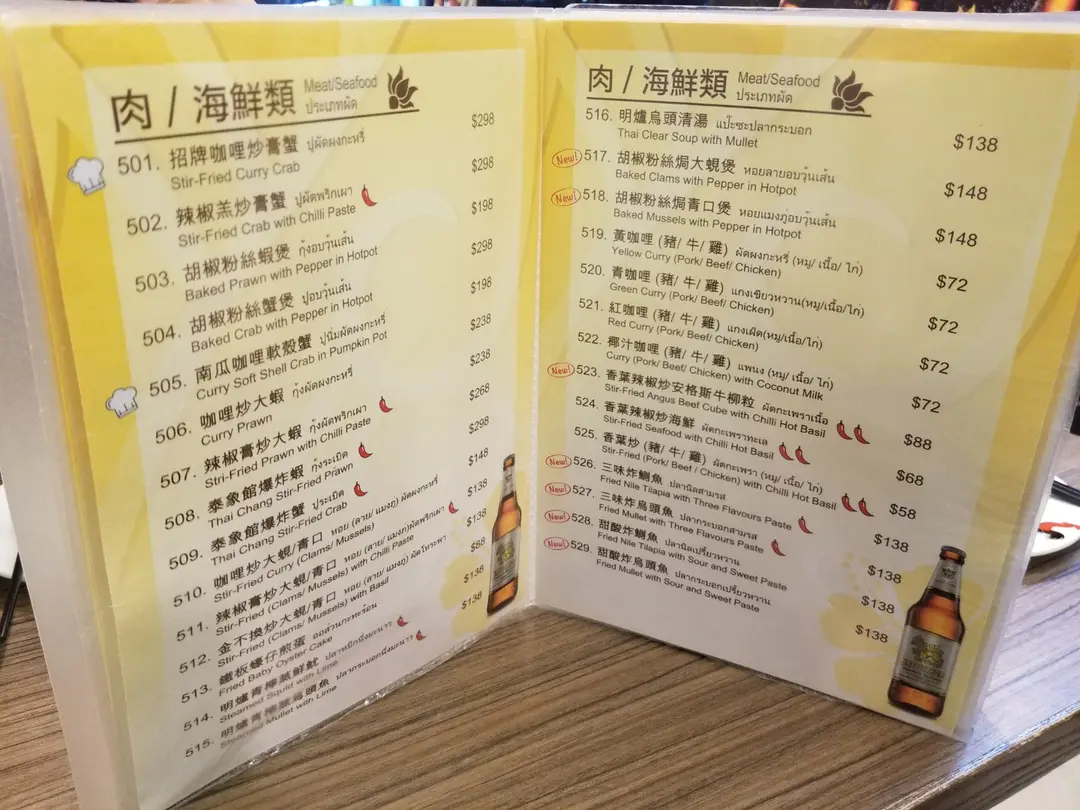 肉 / 海鮮類 Meat/Seafood
ประเภทผัด
501. 招牌咖哩炒膏蟹 ปูผัดผงกะหรี่ $298
Stir-Fried Curry Crab
502. 辣椒羔炒膏蟹 ปูผัดพริกเผา $298
Stir-Fried Crab with Chilli Paste
503. 胡椒粉絲蝦煲 กุ้งอบวุ้นเส้น $198
Baked Prawn with Pepper in Hotpot
504. 胡椒粉絲蟹煲 ปูอบวุ้นเส้น $298
Baked Crab with Pepper in Hotpot
505. 南瓜咖哩軟殼蟹 ปูนิ่มผัดผงกะหรี่ $198
Curry Soft Shell Crab in Pumpkin Pot
506. 咖哩炒大蝦 กุ้งผัดผงกะหรี่ $238
Curry Prawn
507. 辣椒膏炒大蝦 กุ้งผัดพริกเผา $238
Stri-Fried Prawn with Chilli Paste
508. 泰象館爆炸蝦 กุ้งระเบิด $268
Thai Chang Stir-Fried Prawn
509. 泰象館爆炸蟹 ปูระเบิด $298
Thai Chang Stir-Fried Crab
510. 咖哩炒大蜆/青口 หอย (ลาย/ แมงภู่) ผัดผงกะหรี่ $148
Stir-Fried Curry (Clams/ Mussels)
511. 辣椒膏炒大蜆/青口 หอย (ลาย/ แมงภู่)ผัดพริกเผา $138
Stir-Fried (Clams/ Mussels) with Chilli Paste
512. 金不換炒大蜆/青口 หอย (ลาย/ แมงภู่) ผัดโหระพา $138
Stir-Fried (Clams/ Mussels) with Basil
513. 鐵板蠔仔煎蛋 ออส่วนกะทะร้อน $88
Fried Baby Oyster Cake
514. 明爐青檸蒸鮮魷 ปลาหมึกนึ่งมะนาว $138
Steamed Squid with Lime
515. 明爐青檸蒸烏頭魚 ปลากระบอกนึ่งมะนาว $138
Steamed Mullet with Lime
肉 / 海鮮類 Meat/Seafood
ประเภทผัด
516. 明爐烏頭清湯 แป๊ะซะปลากระบอก $138
Thai Clear Soup with Mullet
New! 517. 胡椒粉絲焗大蜆煲 หอยลายอบวุ้นเส้น $148
Baked Clams with Pepper in Hotpot
New! 518. 胡椒粉絲焗青口煲 หอยแมงภู่อบวุ้นเส้น $148
Baked Mussels with Pepper in Hotpot
519. 黃咖哩 (豬/ 牛/ 雞) ผัดผงกะหรี่ (หมู/ เนื้อ/ ไก่) $72
Yellow Curry (Pork/ Beef/ Chicken)
520. 青咖哩 (豬/ 牛/ 雞) แกงเขียวหวาน(หมู/เนื้อ/ไก่) $72
Green Curry (Pork/ Beef/ Chicken)
521. 紅咖哩 (豬/ 牛/ 雞) แกงเผ็ด(หมู/เนื้อ/ไก่) $72
Red Curry (Pork/ Beef/ Chicken)
522. 椰汁咖哩 (豬/ 牛/ 雞) แพนง (หมู/ เนื้อ/ ไก่) $72
Curry (Pork/ Beef/ Chicken) with Coconut Milk
New! 523. 香葉辣椒炒安格斯牛柳粒 ผัดกะเพราเนื้อ $88
Stir-Fried Angus Beef Cube with Chilli Hot Basil
524. 香葉辣椒炒海鮮 ผัดกะเพราทะเล $68
Stir-Fried Seafood with Chilli Hot Basil
525. 香葉炒 (豬/ 牛/ 雞) ผัดกะเพรา (หมู/ เนื้อ/ ไก่) $58
Stir-Fried (Pork/ Beef / Chicken) with Chilli Hot Basil
New! 526. 三味炸鯛魚 ปลานิลสามรส $138
Fried Nile Tilapia with Three Flavours Paste
New! 527. 三味炸烏頭魚 ปลากระบอกสามรส $138
Fried Mullet with Three Flavours Paste
New! 528. 甜酸炸鯛魚 ปลานิลเปรี้ยวหวาน $138
Fried Nile Tilapia with Sour and Sweet Paste
New! 529. 甜酸炸烏頭魚 ปลากระบอกเปรี้ยวหวาน $138
Fried Mullet with Sour and Sweet Paste